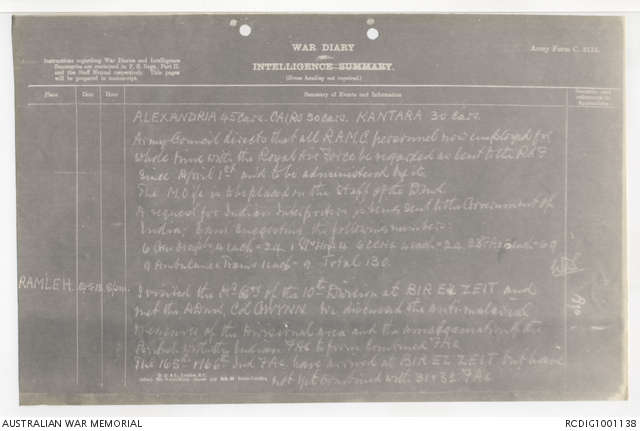 WAR DIARY
or
INTELLIGENCE SUMMARY.
(Erase heading not required).
Army Form C. 2118.
Instructions regarding War Diaries and Intelligence
Summaries are contained in F. S. Regs., Part II.
and the Staff Manual respectively. Title pages
will be prepared in manuscript.
Place Date Hour Summary of Events and Information
ALEXANDRIA 45 Cars. CAIRO 30 Cars. KANTARA 30 Cars.
Army Council directs that all R.A.M.C personnel now employed for
whole time with the Royal Air Force be regarded as lent to the RAF
since April 1st and to be administered by
The M.O. i/c is to be placed on the Staff of the
A request for Indian Interpreters is being sent to the Government of
India. I am suggesting the following numbers:-
4 each = 24. 4 each = 24
9 Ambulance Trains 1 each = 9. Total 130.
RAMLEH.
I visited the Hd Qrs of the 10th Division at BIR EZ ZEIT and
met the ADMS, Col GWYNN. We discussed the anti-malarial
measures of the Divisional area and the amalgamation of the
British with the Indian FAs to form combined FAs
The 165th & 166th Ind FAs have arrived at BIR EZ ZEIT but have
not yet combined with 31 & 32 FAs
AUSTRALIAN WAR MEMORIAL
RCDIG1001138